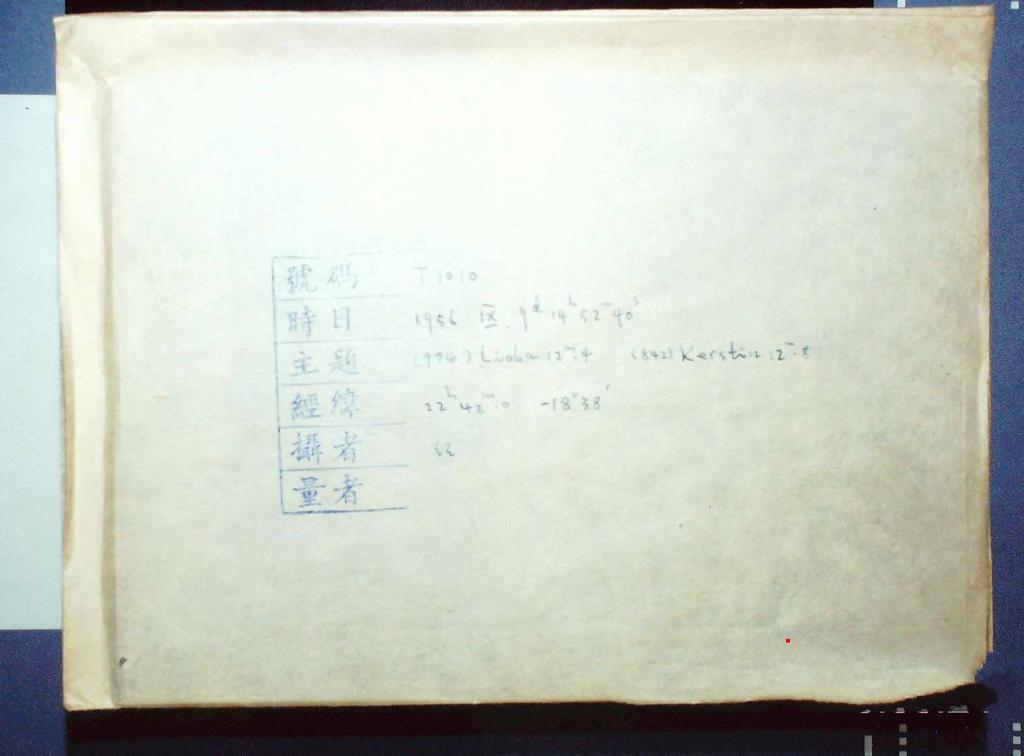 號碼 T1010
時日 1956 区. 9ᵈ 14ʰ 52ᵐ 40ˢ
主題 (974) Lioba 12ᵐ.4 (842) Kerstin 12ᵐ.8
經緯 22ʰ 42ᵐ.0 -18°38'
攝者
量者